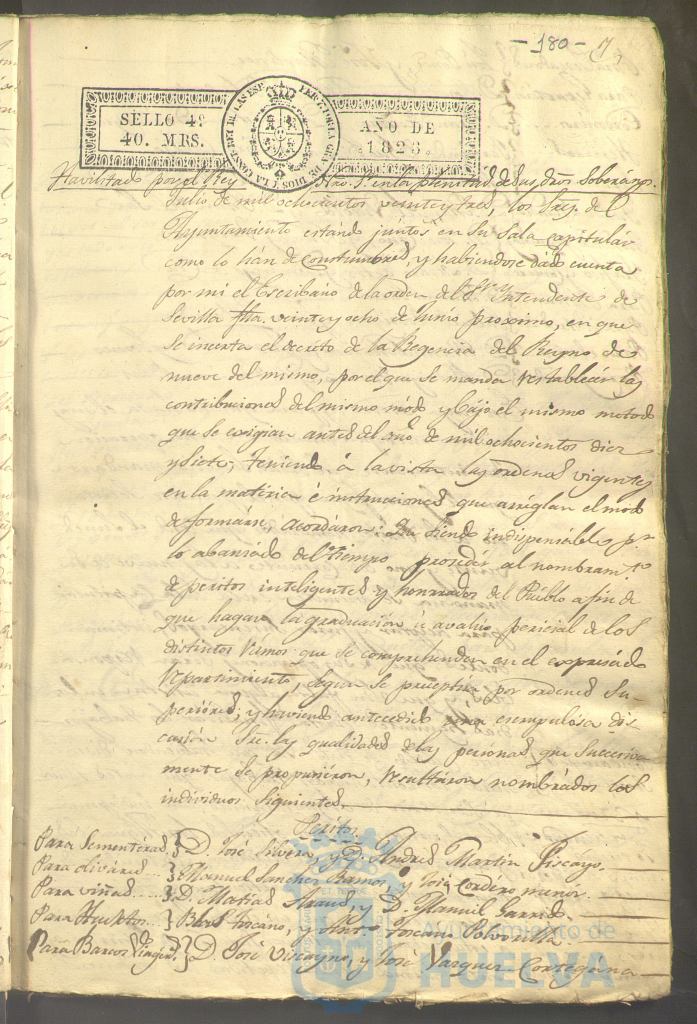 - 180 - 7,
SELLO 4º AÑO DE
40. MRS. 1823.
Havilitado por el Rey Nro. Sr. en la plenitud de sus dros Soberanos.
Julio de mil ochocientos veinte y tres, los Srs. del
Ayuntamiento estando juntos en su Sala capitular
como lo han de constumbre, y habiendose dado cuenta
por mi el Escribano de la orden del Sr. Yntendente de
Sevilla fha. veinte y ocho de Junio proximo, en que
se incerta el decreto de la Regencia del Reyno de
nueve del mismo, por el que se manda restablecer las
contribuciones del mismo modo y bajo el mismo metodo
que se exigian antes del año de mil ochocientos diez
y siete; teniendo á la vista las ordenes vigentes
en la materia é instrucciones que arreglan el modo
de formarse, acordaron: Que siendo indispensable pr.
lo abansado del tiempo proseder al nombramto.
de peritos inteligentes y honrrados del Pueblo a fin de
que hagan la graduacion ú avalúo pericial de los
distintos ramos que se comprehenden en el expresado
repartimiento, segun se preceptúa por ordenes Su-
periores; y haviendo antecedido una escrupulosa dis-
cusion sre. las qualidades de las personas que succesiva-
mente se propusieron, resultaron nombrados los
individuos siguientes.
Peritos.
Para Sementeras } D. José Silvera, y D. Andres Martin Viscayo.
Para olivares } Manuel Sanchez Ramos, y José Cordero menor.
Para viñas } D. Matias, y D. Manuel Garrido.
Para Huertos } Blas Toscano, y Anto. Toscano
Para Barcos } D. José Viscayno, y José Vazquez Cortegana
Ayuntamiento de
HUELVA